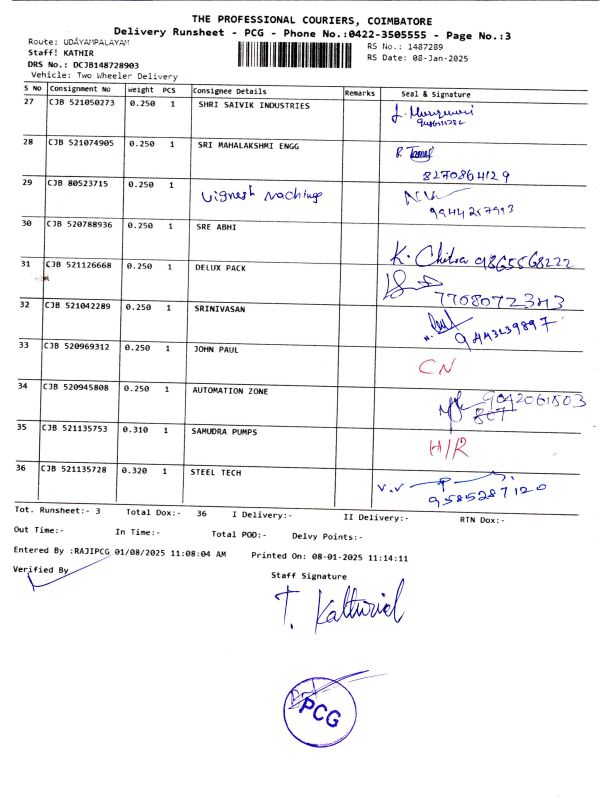 THE PROFESSIONAL COURIERS, COIMBATORE
Delivery Runsheet - PCG - Phone No.:0422-3505555 - Page No.:3
Route: UDAYAMPALAYAM
RS No.: 1487289
Staff! KATHIR
RS Date: 08-Jan-2025
DRS No.: DCJB148728903
Vehicle: Two Wheeler Delivery
S No Consignment No Weight PCS Consignee Details Remarks Seal & Signature
27 CJB 521050273 0.250 1 SHRI SAIVIK INDUSTRIES
28 CJB 521074905 0.250 1 SRI MAHALAKSHMI ENGG
8270864129
29 CJB 80523715 0.250 1 Vignesh Machine
30 CJB 520788936 0.250 1 SRE ABHI K. Chitra 9865568222
31 CJB 521126668 0.250 1 DELUX PACK
7708072343
32 CJB 521042289 0.250 1 SRINIVASAN
9443239897
33 CJB 520969312 0.250 1 JOHN PAUL CN
34 CJB 520945808 0.250 1 AUTOMATION ZONE
35 CJB 521135753 0.310 1 SAMUDRA PUMPS H/R
36 CJB 521135728 0.320 1 STEEL TECH V.V
9585287120
Tot. Runsheet:- 3 Total Dox:- 36 I Delivery:- II Delivery:- RTN Dox:-
Out Time:- In Time:- Total POD:- Delvy Points:-
Entered By :RAJIPCG 01/08/2025 11:08:04 AM Printed On: 08-01-2025 11:14:11
Verified By
Staff Signature
PCG